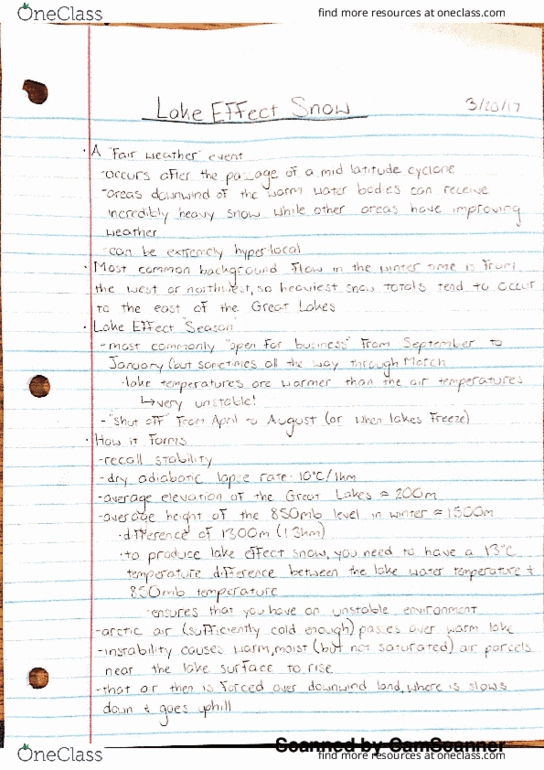 OneClass
find more resources at oneclass.com
Lake Effect Snow
3/20/17
· A "fair weather" event
-occurs after the passage of a mid latitude cyclone
-areas downwind of the warm water bodies can receive
incredibly heavy snow while other areas have improving
weather
-can be extremely hyper-local
· Most common background flow in the winter time is from
the west or northwest, so heaviest snow totals tend to occur
to the east of the Great Lakes
· Lake Effect "Season"
-most commonly "open for business" from September to
January (but sometimes all the way through March
·lake temperatures are warmer than the air temperatures
↳very unstable!
-"shut off" from April to August (or when lakes freeze)
· How it Forms
-recall stability
-dry adiabatic lapse rate: 10°C/1km
-average elevation of the Great Lakes ≈ 200m
-average height of the 850mb level in winter ≈ 1500m
·difference of 1300m (1.3km)
·to produce lake effect snow, you need to have a 13°C
temperature difference between the lake water temperature +
850mb temperature
-ensures that you have an unstable environment
-arctic air (sufficiently cold enough) passes over warm lake
-instability causes warm, moist (but not saturated) air parcels
near the lake surface to rise
-that air then is forced over downwind land, where is slows
down + goes uphill
Scanned by CamScanner
OneClass
find more resources at oneclass.com